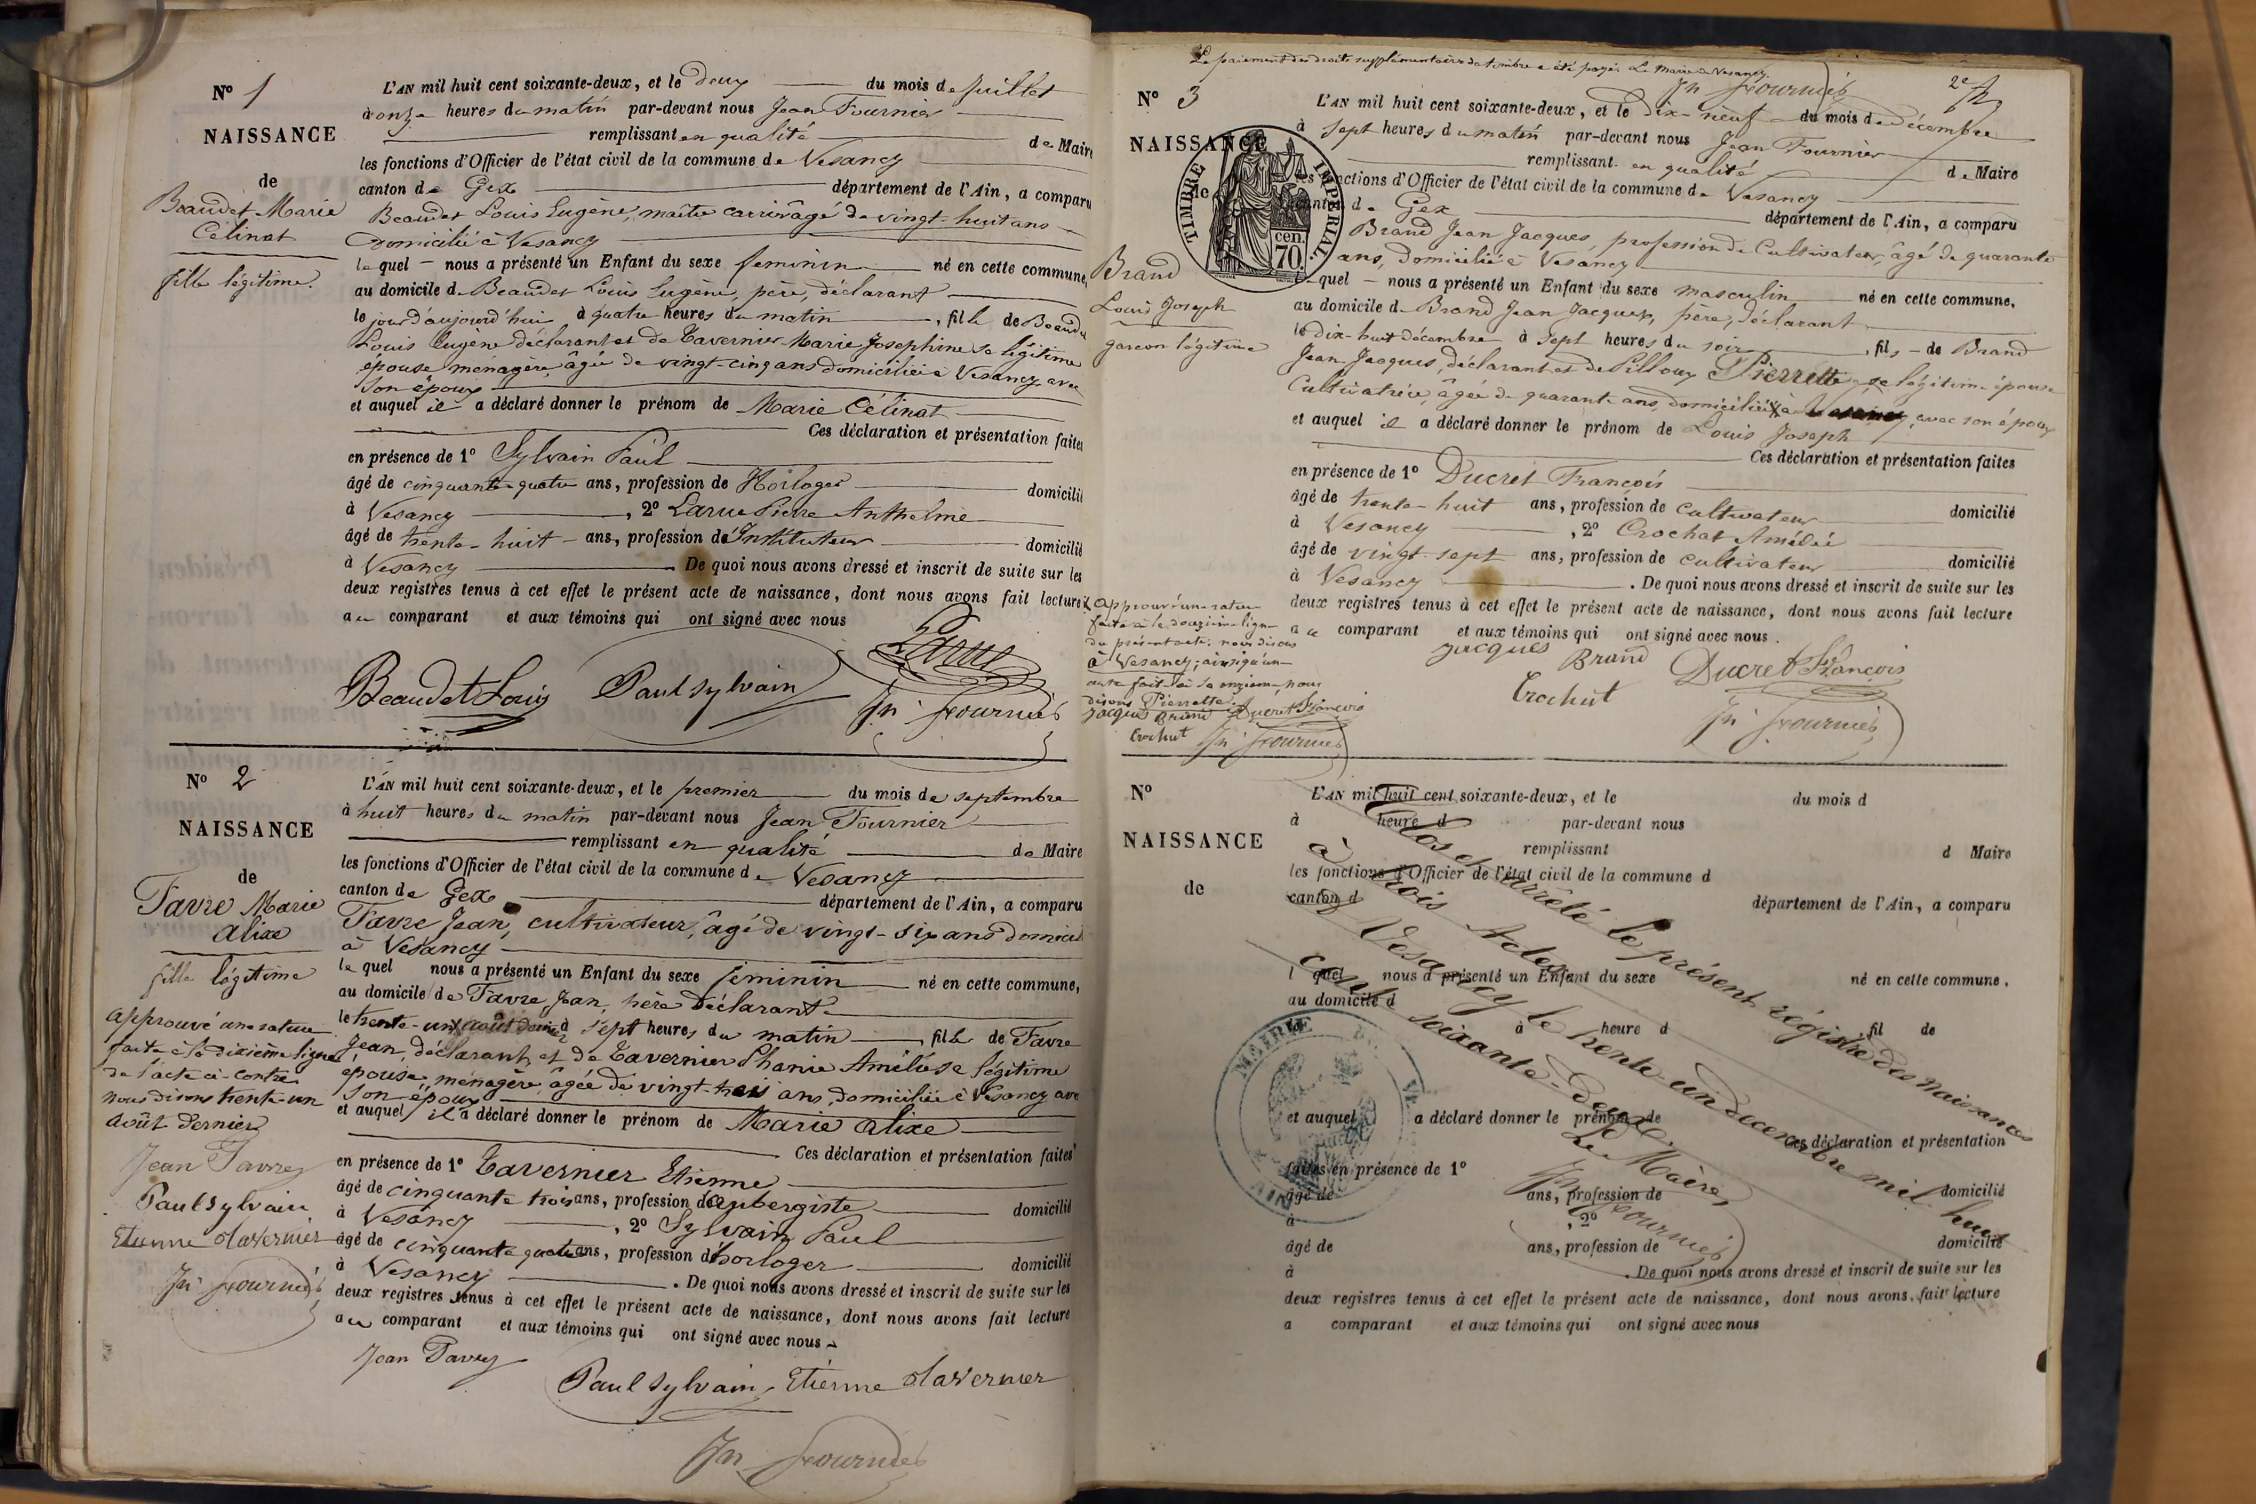 N° 1
NAISSANCE
de
Beaudet Marie
Célinat
fille légitime.
L'AN mil huit cent soixante-deux, et le deux du mois de juillet
à onze heures du matin par-devant nous Jean Fournier
remplissant en qualité de Maire
les fonctions d'Officier de l'état civil de la commune de Vesancy
canton de Gex département de l'Ain, a comparu
Beaudet Louis Eugène, maître carrier âgé de vingt-huit ans
domicilié à Vesancy
lequel nous a présenté un Enfant du sexe féminin né en cette commune,
au domicile de Beaudet Louis Eugène, père, déclarant
le jour d'aujourd'hui à quatre heures du matin, fille de Beaudet
Louis Eugène déclarant et de Tavernier Marie Josephine sa légitime
épouse ménagère, âgée de vingt-cinq ans domiciliée à Vesancy avec
son époux
et auquel il a déclaré donner le prénom de Marie Célinat
Ces déclaration et présentation faites
en présence de 1° Sylvain Paul
âgé de cinquante-quatre ans, profession de Horloger domicilié
à Vesancy, 2° Larue Pierre Anthelme
âgé de trente-huit ans, profession d'Instituteur domicilié
à Vesancy De quoi nous avons dressé et inscrit de suite sur les
deux registres tenus à cet effet le présent acte de naissance, dont nous avons fait lecture
au comparant et aux témoins qui ont signé avec nous
Larue
Beaudet Louis Paul sylvain Jn Fournier
N° 2
NAISSANCE
de
Favre Marie
alixe
fille légitime
approuvé une rature
faite à la dixième ligne
de l'acte ci-contre
nous disons trente-un
août dernier
Jean Favre
Paul sylvain
Etienne Tavernier
Jn Fournier
L'AN mil huit cent soixante-deux, et le premier du mois de septembre
à huit heures du matin par-devant nous Jean Fournier
remplissant en qualité de Maire
les fonctions d'Officier de l'état civil de la commune de Vesancy
canton de Gex département de l'Ain, a comparu
Favre Jean, cultivateur, âgé de vingt-six ans domicilié
à Vesancy
lequel nous a présenté un Enfant du sexe féminin né en cette commune,
au domicile de Favre Jean, père Déclarant
le trente-un août dernier à sept heures du matin, fille de Favre
Jean, déclarant et de Tavernier Phanie Amélie sa légitime
épouse, ménagère, âgée de vingt-trois ans, domiciliée à Vesancy avec
son époux
et auquel il a déclaré donner le prénom de Marie alixe
Ces déclaration et présentation faites
en présence de 1° Tavernier Etienne
âgé de cinquante trois ans, profession d'aubergiste domicilié
à Vesancy, 2° Sylvain Paul
âgé de cinquante quatre ans, profession d'horloger domicilié
à Vesancy. De quoi nous avons dressé et inscrit de suite sur les
deux registres tenus à cet effet le présent acte de naissance, dont nous avons fait lecture
au comparant et aux témoins qui ont signé avec nous
Jean Favre
Paul sylvain, Etienne Tavernier
Jn Fournier
Le paiement des droits supplémentaires de timbre a été payé. Le Maire de Vesancy.
Jn Fournier
N° 3
NAISSANCE
de
TIMBRE IMPÉRIAL
70 cen.
Brand
Louis Joseph
garcon légitime
L'AN mil huit cent soixante-deux, et le dix-neuf du mois de décembre
à sept heures du matin par-devant nous Jean Fournier
remplissant en qualité de Maire
les fonctions d'Officier de l'état civil de la commune de Vesancy
canton de Gex département de l'Ain, a comparu
Brand Jean Jacques, profession de Cultivateur, âgé de quarante
ans, domicilié à Vesancy
lequel nous a présenté un Enfant du sexe masculin né en cette commune,
au domicile de Brand Jean Jacques, père, déclarant
le dix-huit décembre à sept heures du soir, fils de Brand
Jean Jacques, déclarant et de Pilloux Pierrette, sa légitime épouse
Cultivatrice, âgée de quarante ans, domiciliée à Vesancy, avec son époux
et auquel il a déclaré donner le prénom de Louis Joseph
Ces déclaration et présentation faites
en présence de 1° Ducret François
âgé de trente-huit ans, profession de cultivateur domicilié
à Vesancy, 2° Crochat Amédée
âgé de vingt-sept ans, profession de cultivateur domicilié
à Vesancy. De quoi nous avons dressé et inscrit de suite sur les
deux registres tenus à cet effet le présent acte de naissance, dont nous avons fait lecture
au comparant et aux témoins qui ont signé avec nous.
jacques Brand Ducret François
Crochut Jn Fournier
approuvé une rature
faite à la douzième ligne
du présent acte, nous disons
à Vesancy; ainsi qu'une
autre faite à la onzième, nous
disons Pierrette.
jacques Brand Ducret François
Crochut Jn Fournier
N°
NAISSANCE
de
L'AN mil huit cent soixante-deux, et le du mois d
à heure d par-devant nous
remplissant d Maire
les fonctions d'Officier de l'état civil de la commune d
canton d département de l'Ain, a comparu
l quel nous a présenté un Enfant du sexe né en cette commune.
au domicile d
à heure d fil de
et auquel a déclaré donner le prénom de
Ces déclaration et présentation
faites en présence de 1°
âgé de ans, profession de domicilié
à , 2°
âgé de ans, profession de domicilié
à . De quoi nous avons dressé et inscrit de suite sur les
deux registres tenus à cet effet le présent acte de naissance, dont nous avons fait lecture
a comparant et aux témoins qui ont signé avec nous
Clos et arrêté le présent régistre des naissances
à trois Actes
à Vesancy le trente-un décembre mil huit
cent soixante-deux.
Le Maire,
Jn Fournier
MAIRIE
AIN